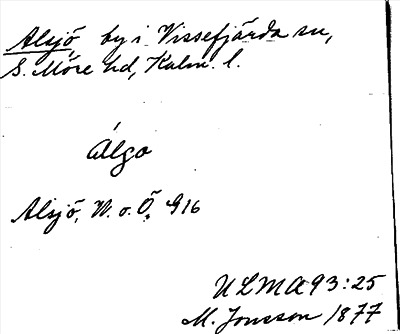 Alsjö, by i Vissefjärda sn,
S. Möre hd, Kalm. l.
álgo
Alsjö, N. o. Ö. G16
ULMA 93:25
M. Jonsson 1877